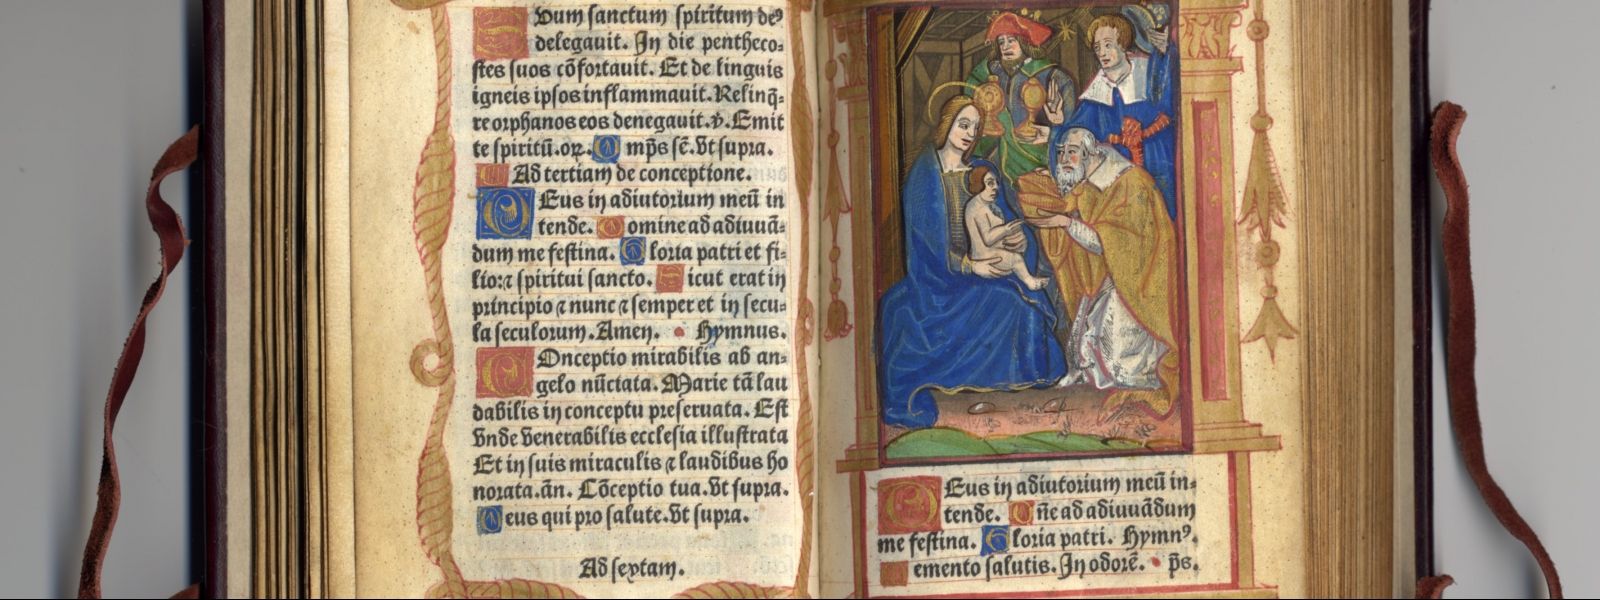 Suum sanctum spiritum deꝰ
delegauit. In die pentheco-
stes suos cōfortauit. Et de linguis
igneis ipsos inflammauit. Relinq̄-
re orphanos eos denegauit. v̄. Emit
te spiritū. oꝛ. O mp̄s sē. Vt supra.
Ad tertiam de conceptione.
DEus in adiutorium meū in
tende. Domine ad adiuuā-
dum me festina. Gloria patri et fi-
lio: ⁊ spiritui sancto. Sicut erat in
principio ⁊ nunc ⁊ semper et in secu-
la seculorum. Amen. Hymnus.
COnceptio mirabilis ab an-
gelo nūciata. Marie tā lau
dabilis in conceptu preseruata. Est
Vnde Venerabilis ecclesia illustrata
Et in suis miraculis ⁊ laudibus ho
norata. an̄. Cōceptio tua. Vt supra.
Deus qui pro salute. Vt supra.
Ad sextam.
DEus in adiutorium meū in-
tende. Dn̄e ad adiuuādum
me festina. Gloria patri. Hymnꝰ.
Memento salutis. In odorē. ps.